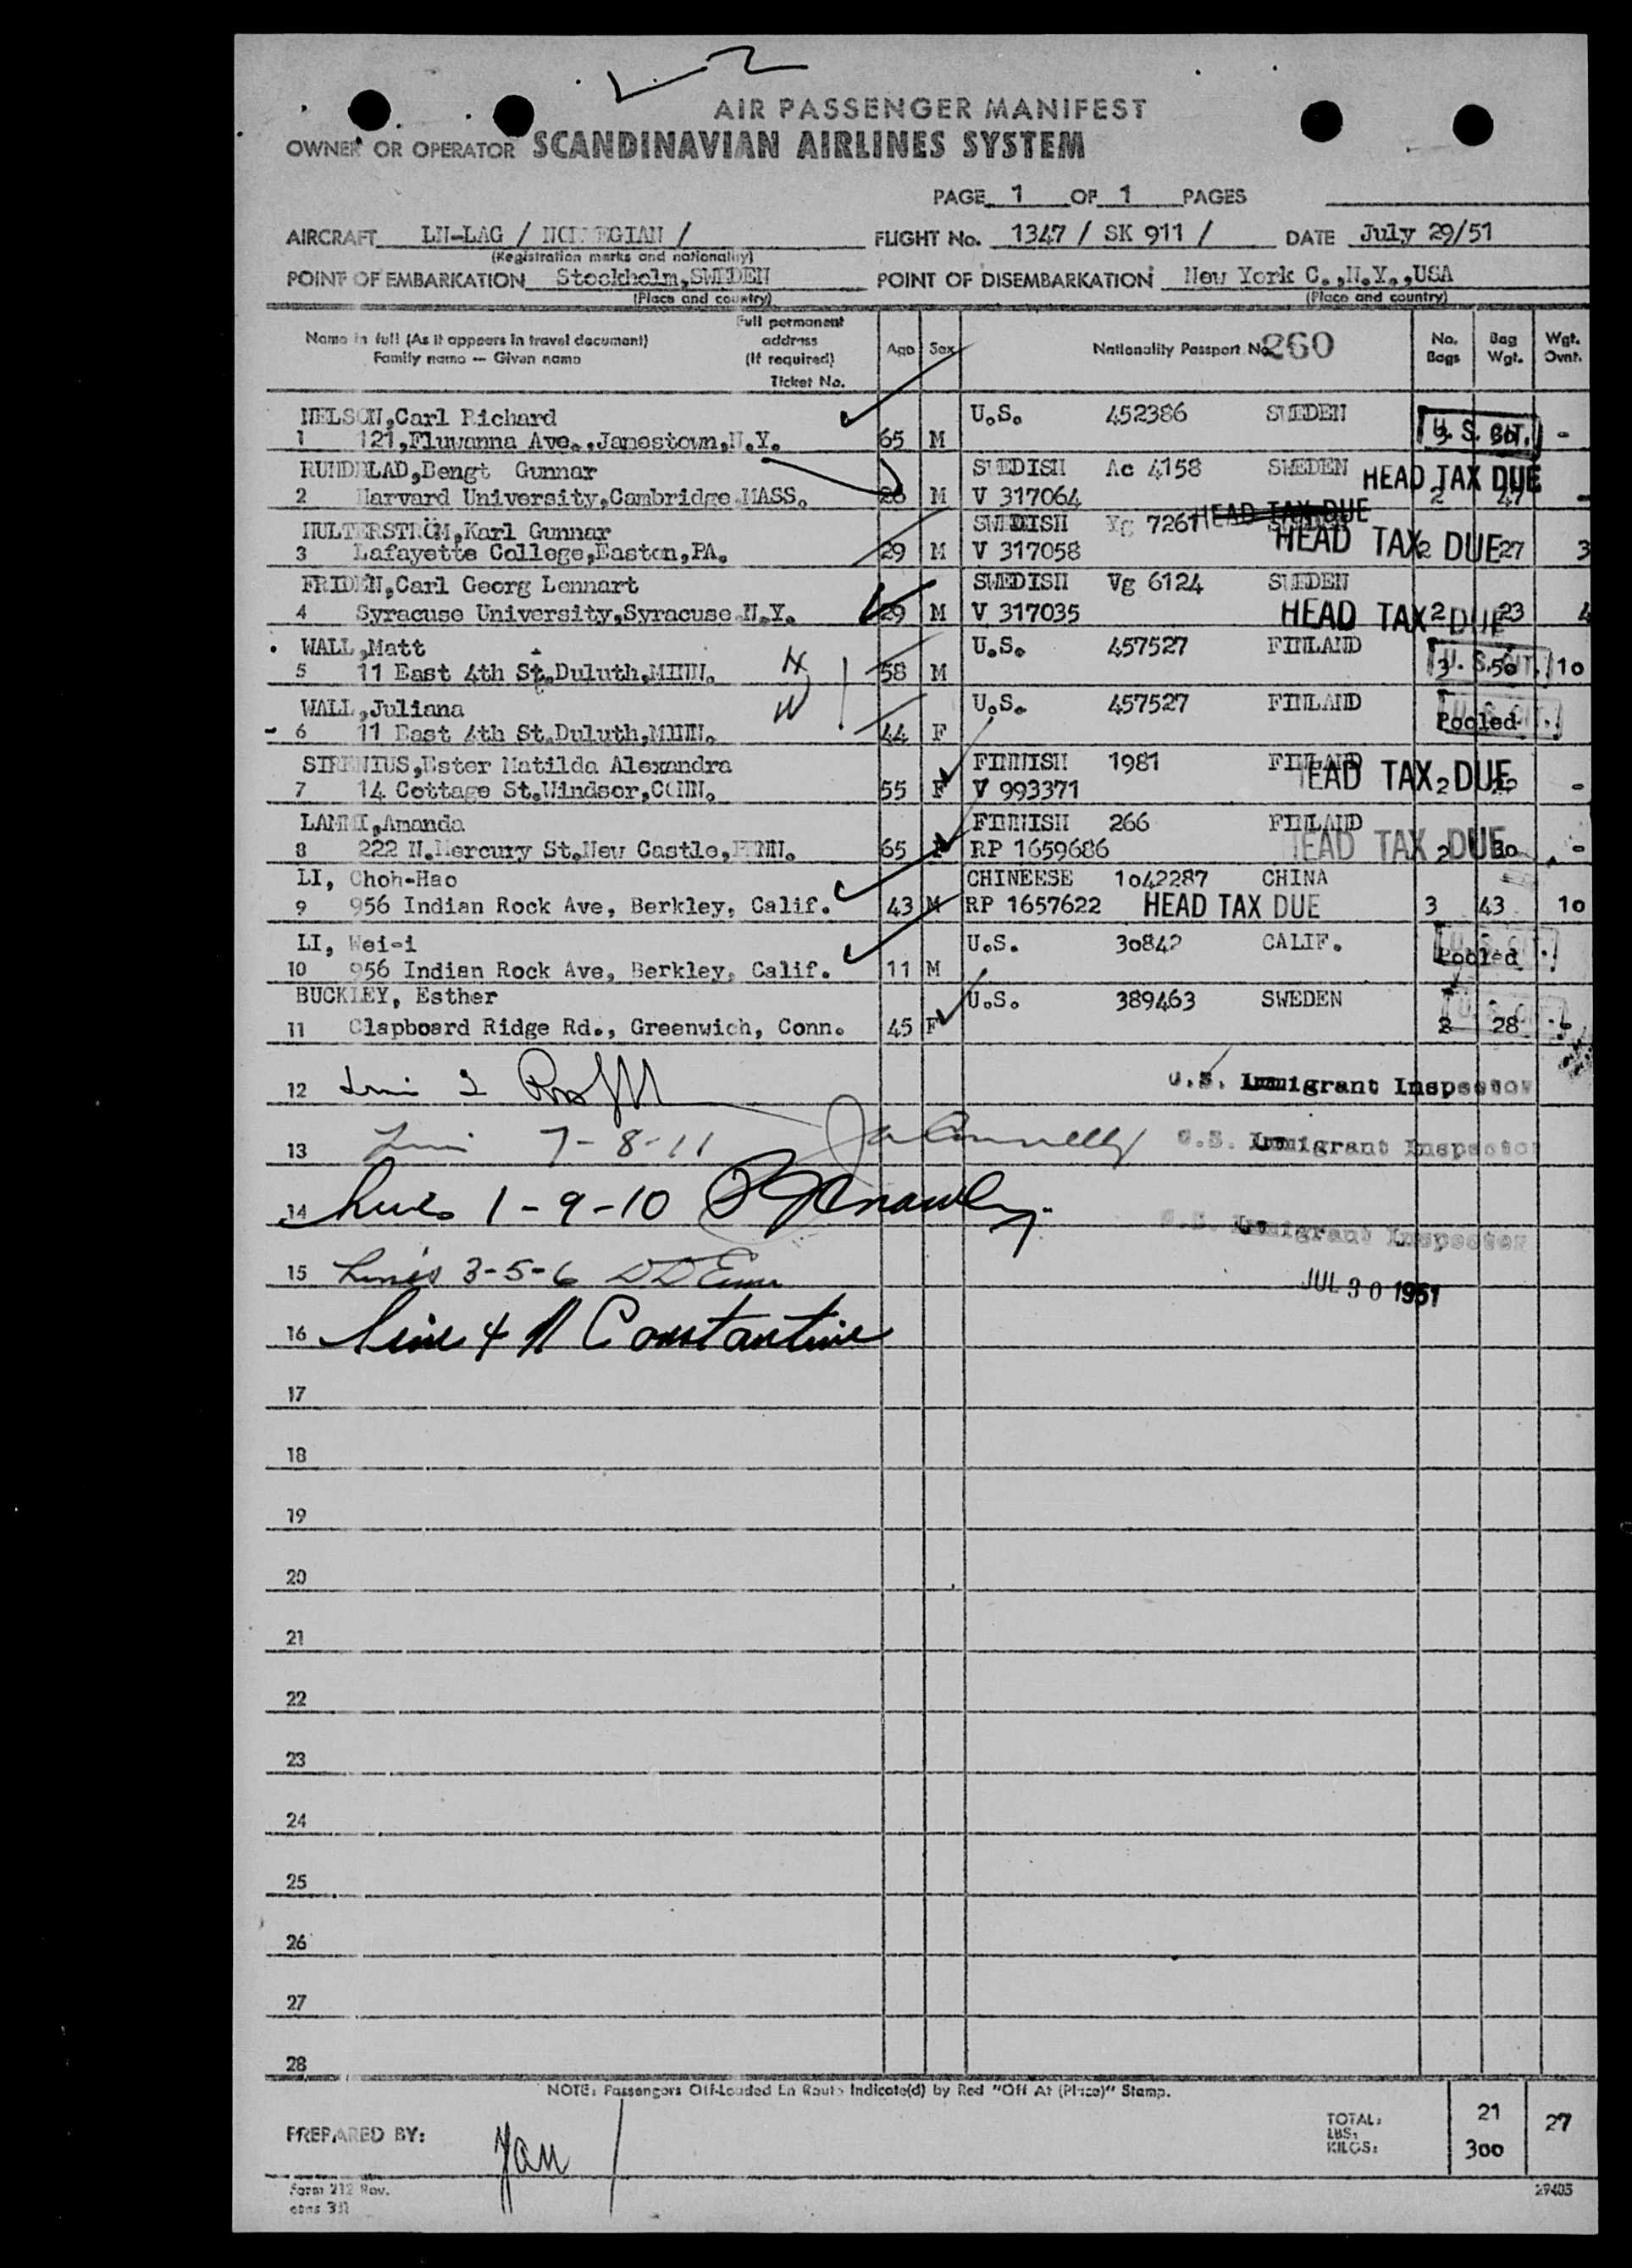 AIR PASSENGER MANIFEST
OWNER OR OPERATOR SCANDINAVIAN AIRLINES SYSTEM
PAGE 1 OF 1 PAGES
AIRCRAFT LN-LAG / NORWEGIAN / FLIGHT No. 1347 / SK 911 / DATE July 29/51
(Registration marks and nationality)
POINT OF EMBARKATION Stockholm,SWEDEN POINT OF DISEMBARKATION New York C.,N.Y.,USA
(Place and country) (Place and country)
Name in full (As it appears in travel document) Family name — Given name Full permanent address (If required) Ticket No. Age Sex Nationality Passport No. 260 No. Bags Bag Wgt. Wgt. Ovnt.
NELSON,Carl Richard U.S. 452386 SWEDEN
1 121,Fluvanna Ave.,Jamestown,N.Y. 65 M U.S. CIT. -
RUNDBLAD,Bengt Gunnar SWEDISH Ac 4158 SWEDEN HEAD TAX DUE
2 Harvard University,Cambridge MASS. 26 M V 317064 2 47 -
HULTERSTRÖM,Karl Gunnar SWEDISH Vg 7261 SWEDEN HEAD TAX DUE
3 Lafayette College,Easton,PA. 29 M V 317058 HEAD TAX DUE 2 27 3
FRIDEN,Carl Georg Lennart SWEDISH Vg 6124 SWEDEN
4 Syracuse University,Syracuse N.Y. 29 M V 317035 HEAD TAX DUE 2 23 4
WALL,Matt U.S. 457527 FINLAND
5 11 East 4th St.Duluth,MINN. H 58 M U.S. CIT. 3 50 10
WALL,Juliana W U.S. 457527 FINLAND
6 11 East 4th St.Duluth,MINN. 44 F U.S. CIT. Pooled
SIRENIUS,Ester Matilda Alexandra FINNISH 1981 FINLAND
7 14 Cottage St.Windsor,CONN. 55 F V 993371 HEAD TAX DUE 2 -
LAMMI,Amanda FINNISH 266 FINLAND
8 222 N.Mercury St.New Castle,PENN. 65 F RP 1659686 HEAD TAX DUE 2 30 -
LI, Choh-Hao CHINEESE 1042287 CHINA
9 956 Indian Rock Ave, Berkley, Calif. 43 M RP 1657622 HEAD TAX DUE 3 43 10
LI, Wei-i U.S. 30842 CALIF.
10 956 Indian Rock Ave, Berkley, Calif. 11 M U.S. CIT. Pooled
BUCKLEY, Esther U.S. 389463 SWEDEN
11 Clapboard Ridge Rd., Greenwich, Conn. 45 F U.S. CIT. 2 28
12 Line 2 U.S. Immigrant Inspector
13 Line 7-8-11 U.S. Immigrant Inspector
14 Lines 1-9-10 U.S. Immigrant Inspector
15 Lines 3-5-6 JUL 30 1951
16 Line 4 Constantine
17
18
19
20
21
22
23
24
25
26
27
28
NOTE: Passengers Off-Loaded En Route Indicate(d) by Red "Off At (Place)" Stamp.
PREPARED BY: Jan
TOTAL: 21 27
LBS:
KILOS: 300
Form 212 Rev.
29405